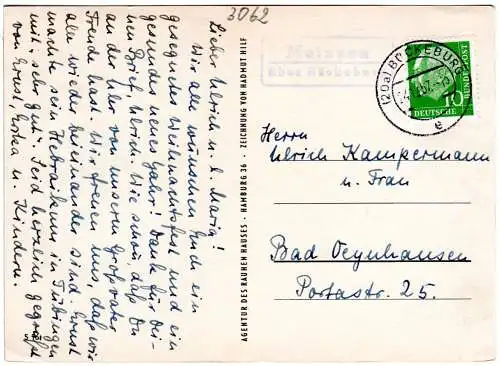 3062
Lieber Ulrich u. l. Maria!
Wir alle wünschen Euch ein
gesegnetes Weihnachtsfest und ein
gesundes neues Jahr! Dank für Dei-
nen Brief, Ulrich. Wie schön, daß Du
an der Uhr von unserem Großvater
Freude hast. Wir freuen uns, daß wir
alle wieder beieinander sind. Ernst
machte sein Hebraikum in Tübingen
mit „sehr gut“. Seid herzlich gegrüßt
von Ernst, Erika u. Kindern.
AGENTUR DES RAUHEN HAUSES · HAMBURG 36 · ZEICHNUNG VON
Meinsen
über Bückeburg
(20a) BÜCKEBURG
e
10
DEUTSCHE BUNDESPOST
Herrn
Ulrich Kampermann
u. Frau
Bad Oeynhausen
Portastr. 25.